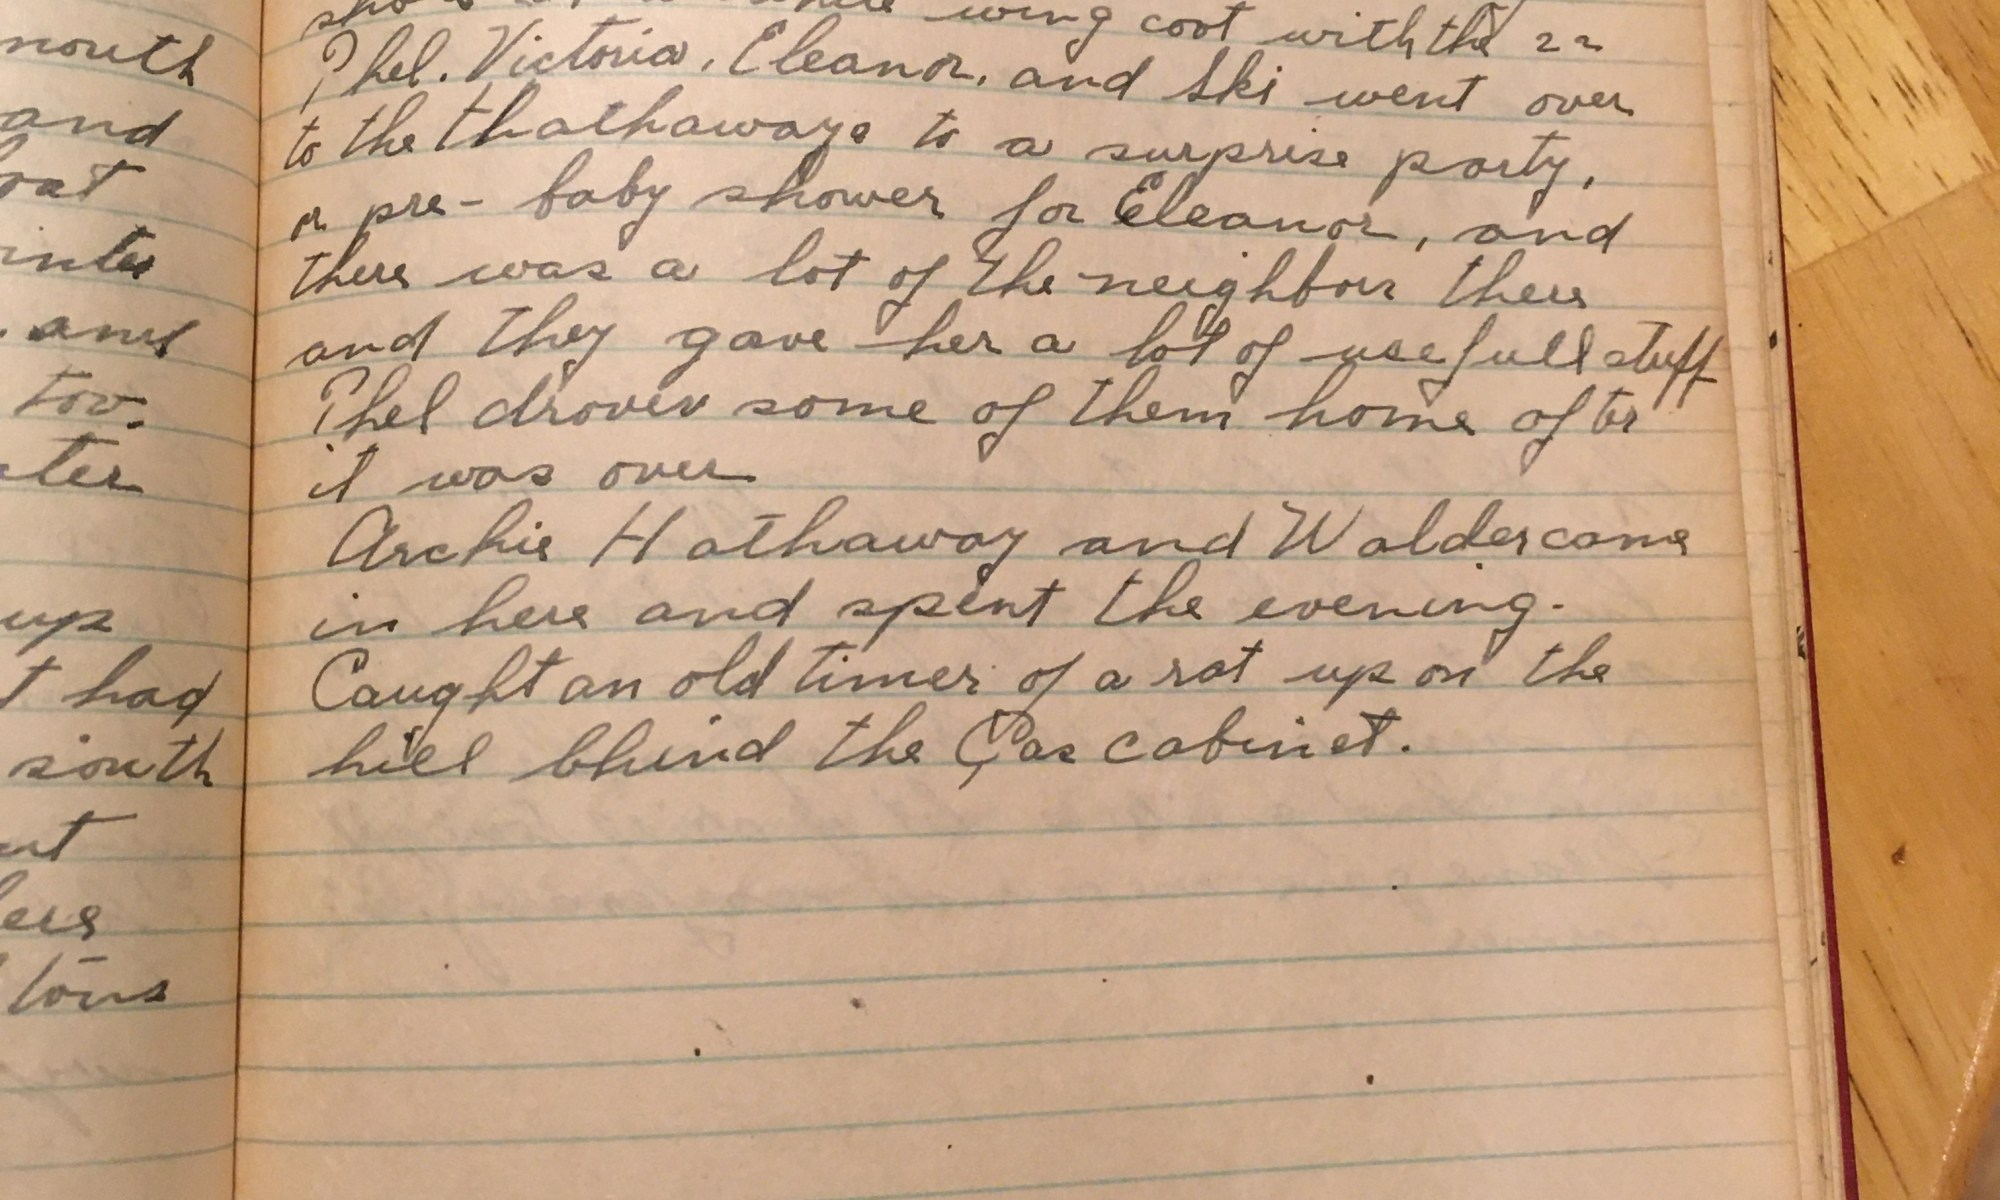 mouth
and
too.
up
had
south
wing coot with the 22
Phel. Victoria, Eleanor, and Ski went over
to the thathaways to a surprise party,
or pre-baby shower for Eleanor, and
there was a lot of the neighbors there
and they gave her a lot of usefull stuff
Phel drover some of them home after
it was over
Archie Hathaway and Walder came
in here and spent the evening.
Caught an old timer of a rat up on the
hill bhind the Gas cabinet.